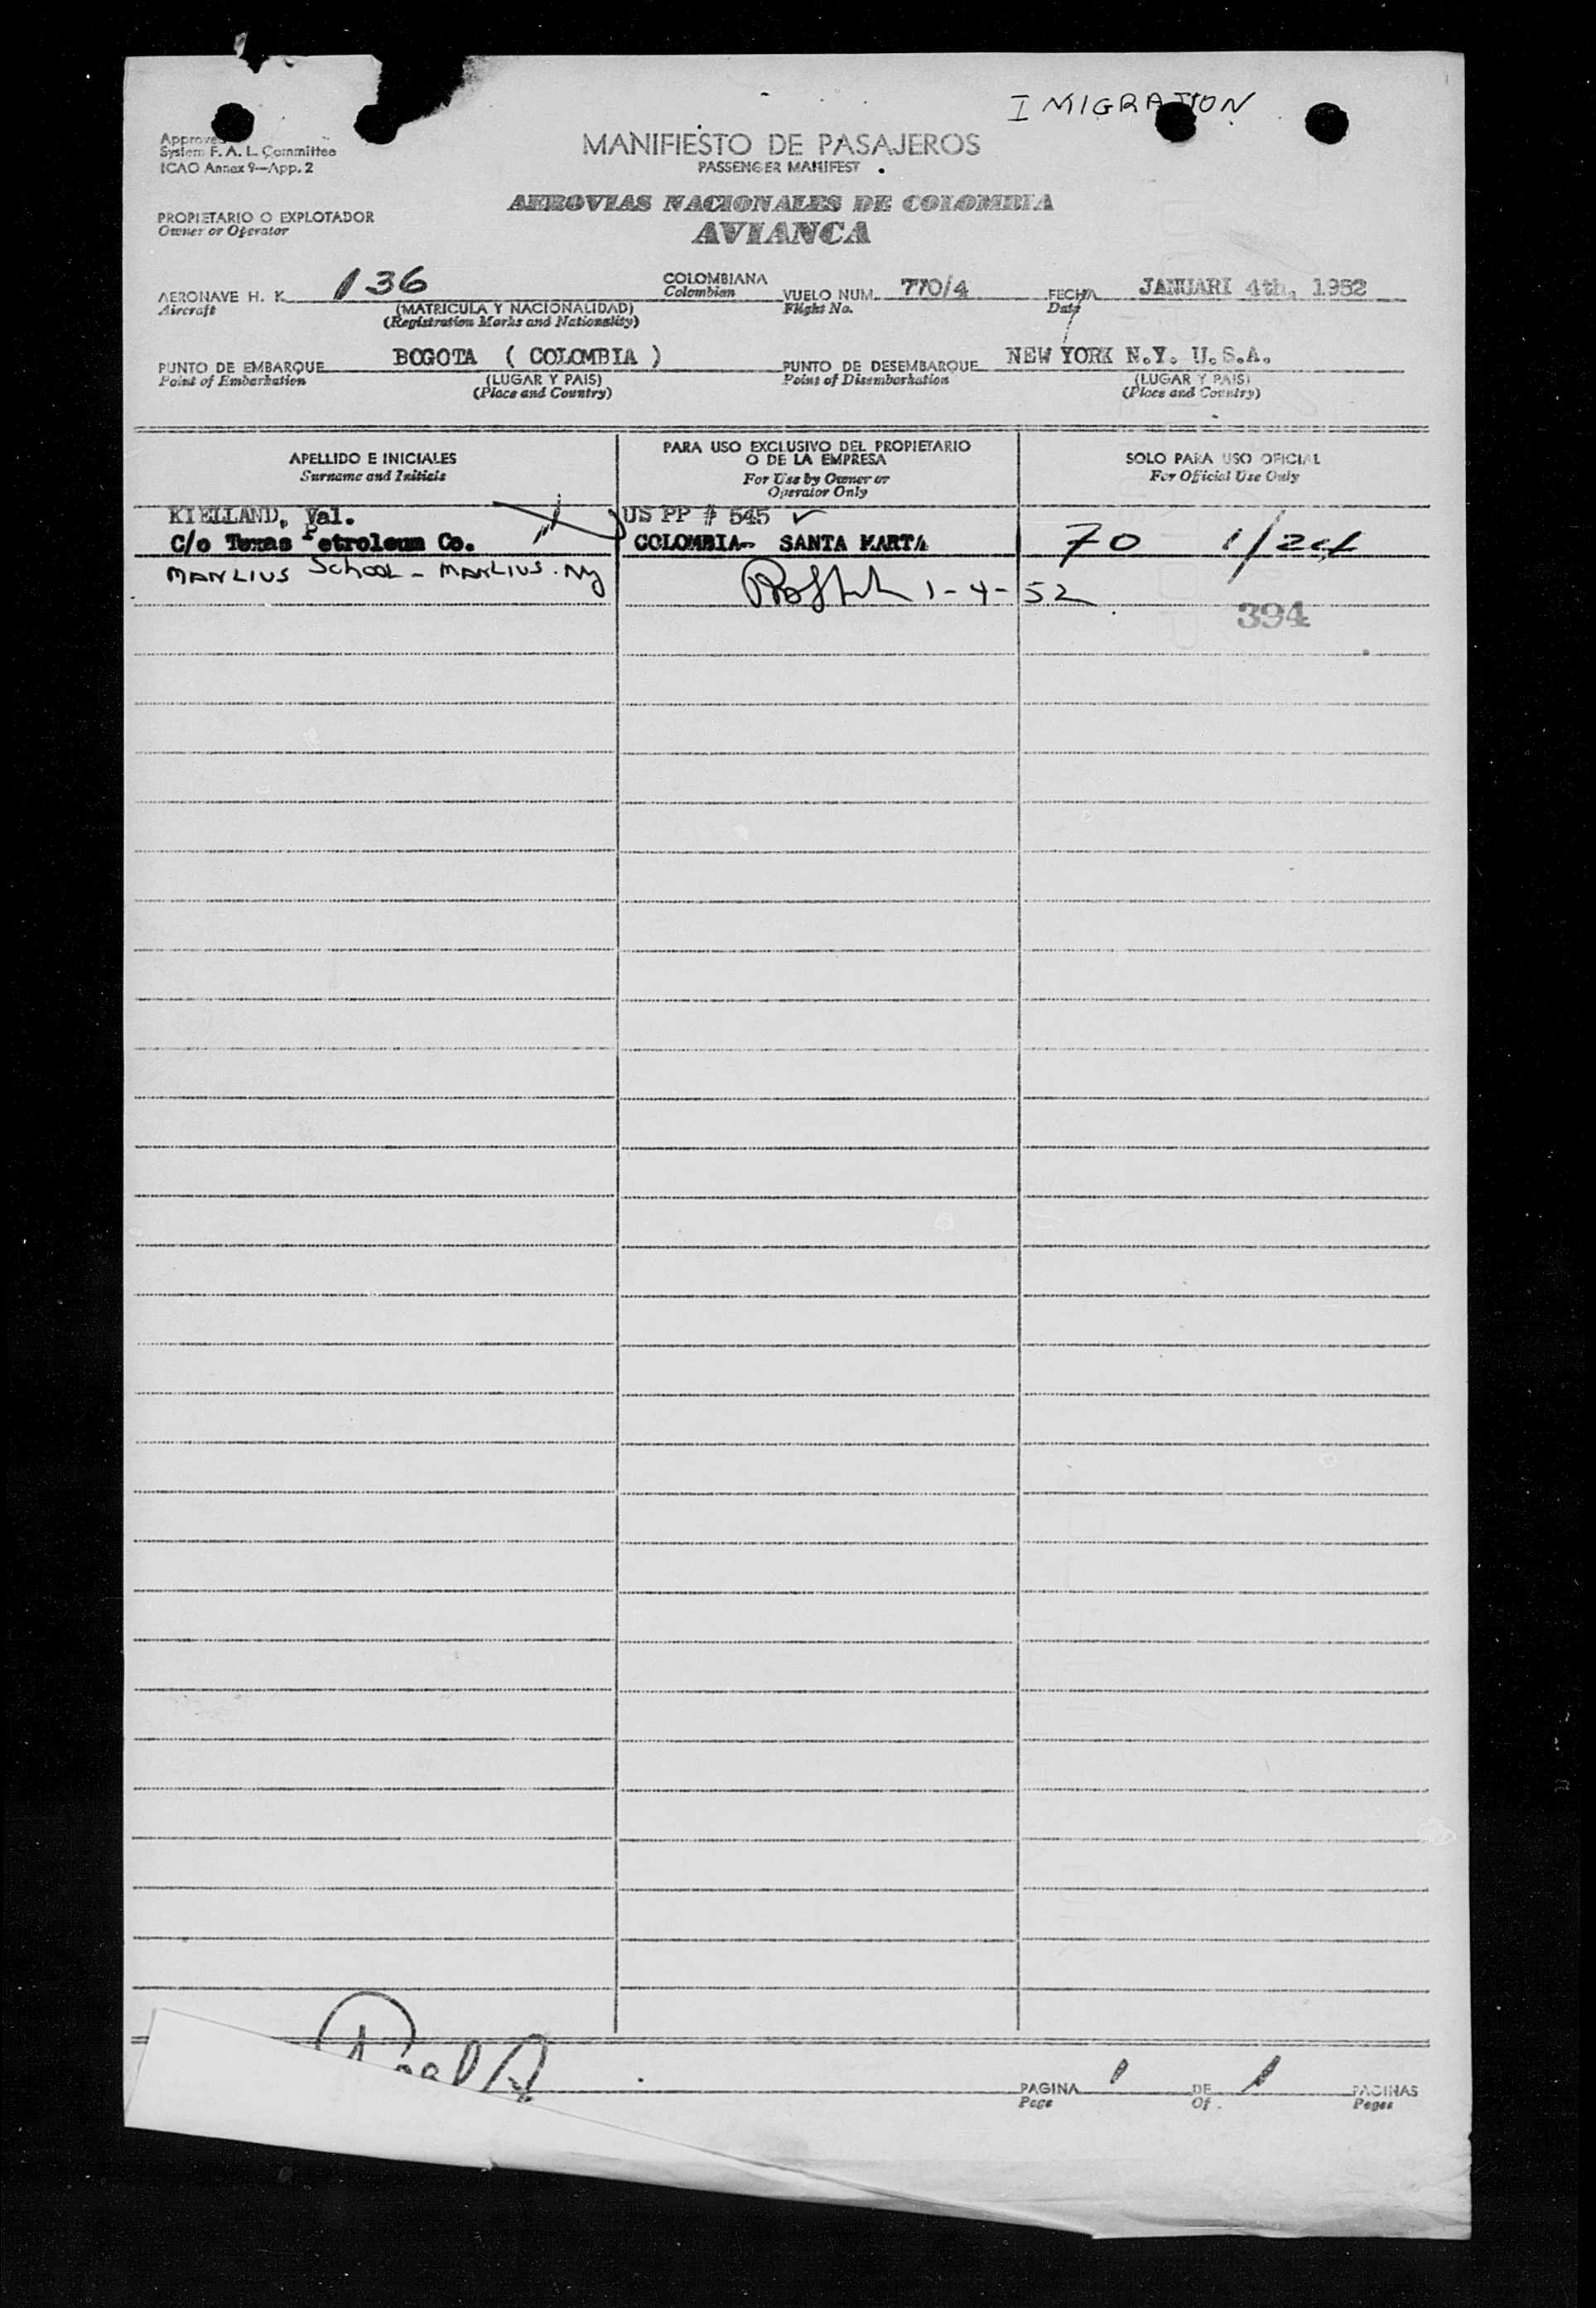 IMIGRATION
Approved
System F. A. L. Committee
ICAO Annex 9—App. 2
MANIFIESTO DE PASAJEROS
PASSENGER MANIFEST
PROPIETARIO O EXPLOTADOR
Owner or Operator
AEROVIAS NACIONALES DE COLOMBIA
AVIANCA
AERONAVE H. K. 136 COLOMBIANA VUELO NUM. 770/4 FECHA JANUARI 4th, 1952
Aircraft (MATRICULA Y NACIONALIDAD) Colombian Flight No. Date
(Registration Marks and Nationality)
PUNTO DE EMBARQUE BOGOTA ( COLOMBIA ) PUNTO DE DESEMBARQUE NEW YORK N.Y. U.S.A.
Point of Embarkation (LUGAR Y PAIS) Point of Disembarkation (LUGAR Y PAIS)
(Place and Country) (Place and Country)
APELLIDO E INICIALES PARA USO EXCLUSIVO DEL PROPIETARIO O DE LA EMPRESA SOLO PARA USO OFICIAL
Surname and Initials For Use by Owner or Operator Only For Official Use Only
KIELLAND, Val. US PP # 545 ✓
C/o Texas Petroleum Co. COLOMBIA- SANTA MARTA 70 1/24
MANLIUS SCHOOL - MANLIUS. NY 1-4-52
394
PAGINA 1 DE 1 PAGINAS
Page Of Pages